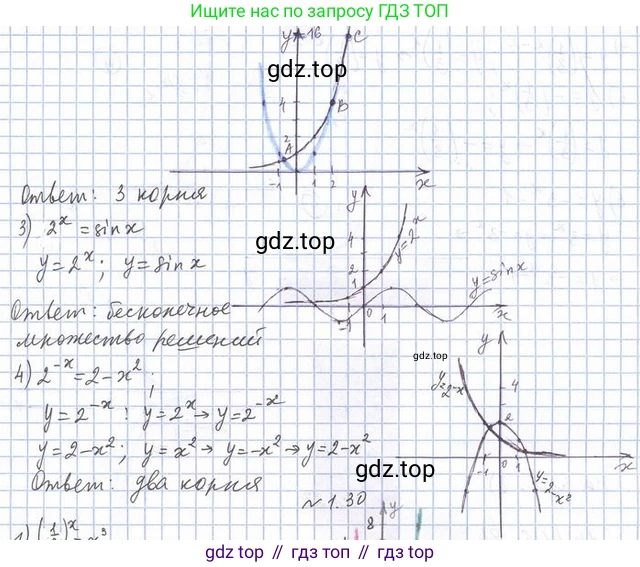 Ищите нас по запросу ГДЗ ТОП
y=16 C
gdz.top
4 B
2
A
-1 1 2 x
Ответ: 3 корня
3) 2^x = sin x
y = 2^x; y = sin x
gdz.top
y
4
2
1
y=2^x
y=sin x
-1 0 1 x
Ответ: бесконечное
множество решений
4) 2^-x = 2 - x^2;
y = 2^-x: y = 2^x → y = 2^-x
y = 2 - x^2; y = x^2 → y = -x^2 → y = 2 - x^2
Ответ: два корня
y
y=2^-x
4
2
-1 0 1 x
y=2-x^2
gdz.top
~ 1.30
8 y
1) (1/2)^x = x^3
gdz.top // gdz.top // gdz.top // gdz.top